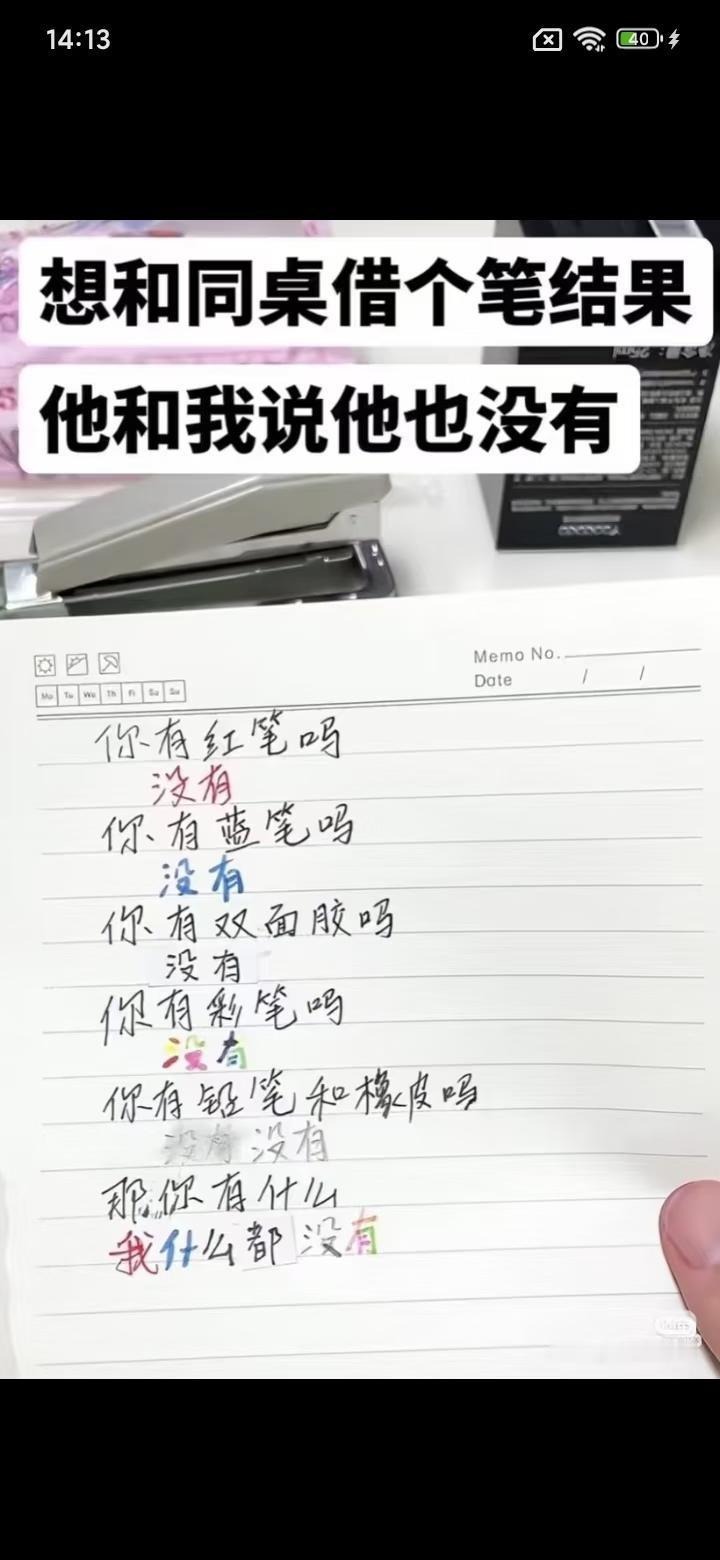 14:13
40
想和同桌借个笔结果
他和我说他也没有
25ml
Memo No.
Date / /
Mo Tu We Th Fr Sa Su
你有红笔吗
没有
你有蓝笔吗
没有
你有双面胶吗
没有
你有彩笔吗
没有
你有铅笔和橡皮吗
没有 没有
那你有什么
我什么都没有